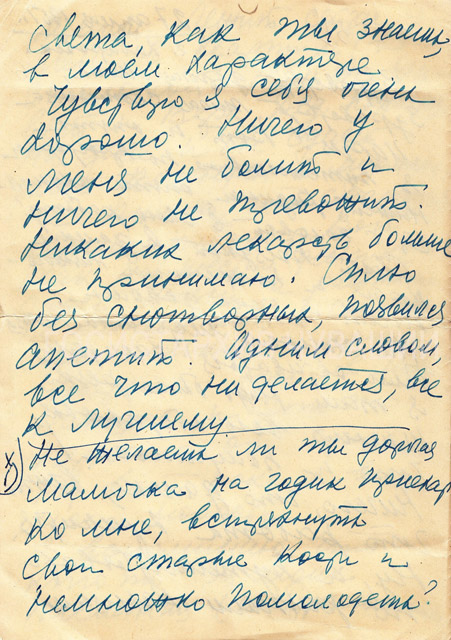 света, как ты знаешь,
в моём характере
Чувствую я себя очень
хорошо. Ничего у
меня не болит и
ничего не тревожит.
Никаких лекарств больше
не принимаю. Сплю
без снотворных, появился
апетит. Одним словом,
все что ни делается, все
к лучшему.
Не желаешь ли ты дорогая
мамочка на годик приехать
ко мне, встряхнуть
свои старые кости и
немножко помолодеть?